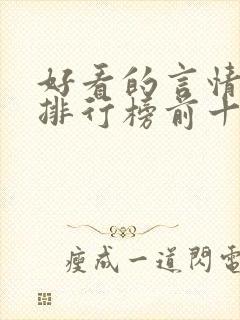 好看的言情
排行榜前十
瘦成一道閃電